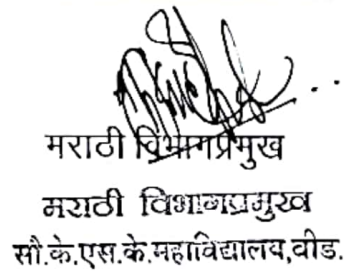 मराठी विभागप्रमुख
मराठी विभागप्रमुख
सौ.के.एस.के.महाविद्यालय,बीड.